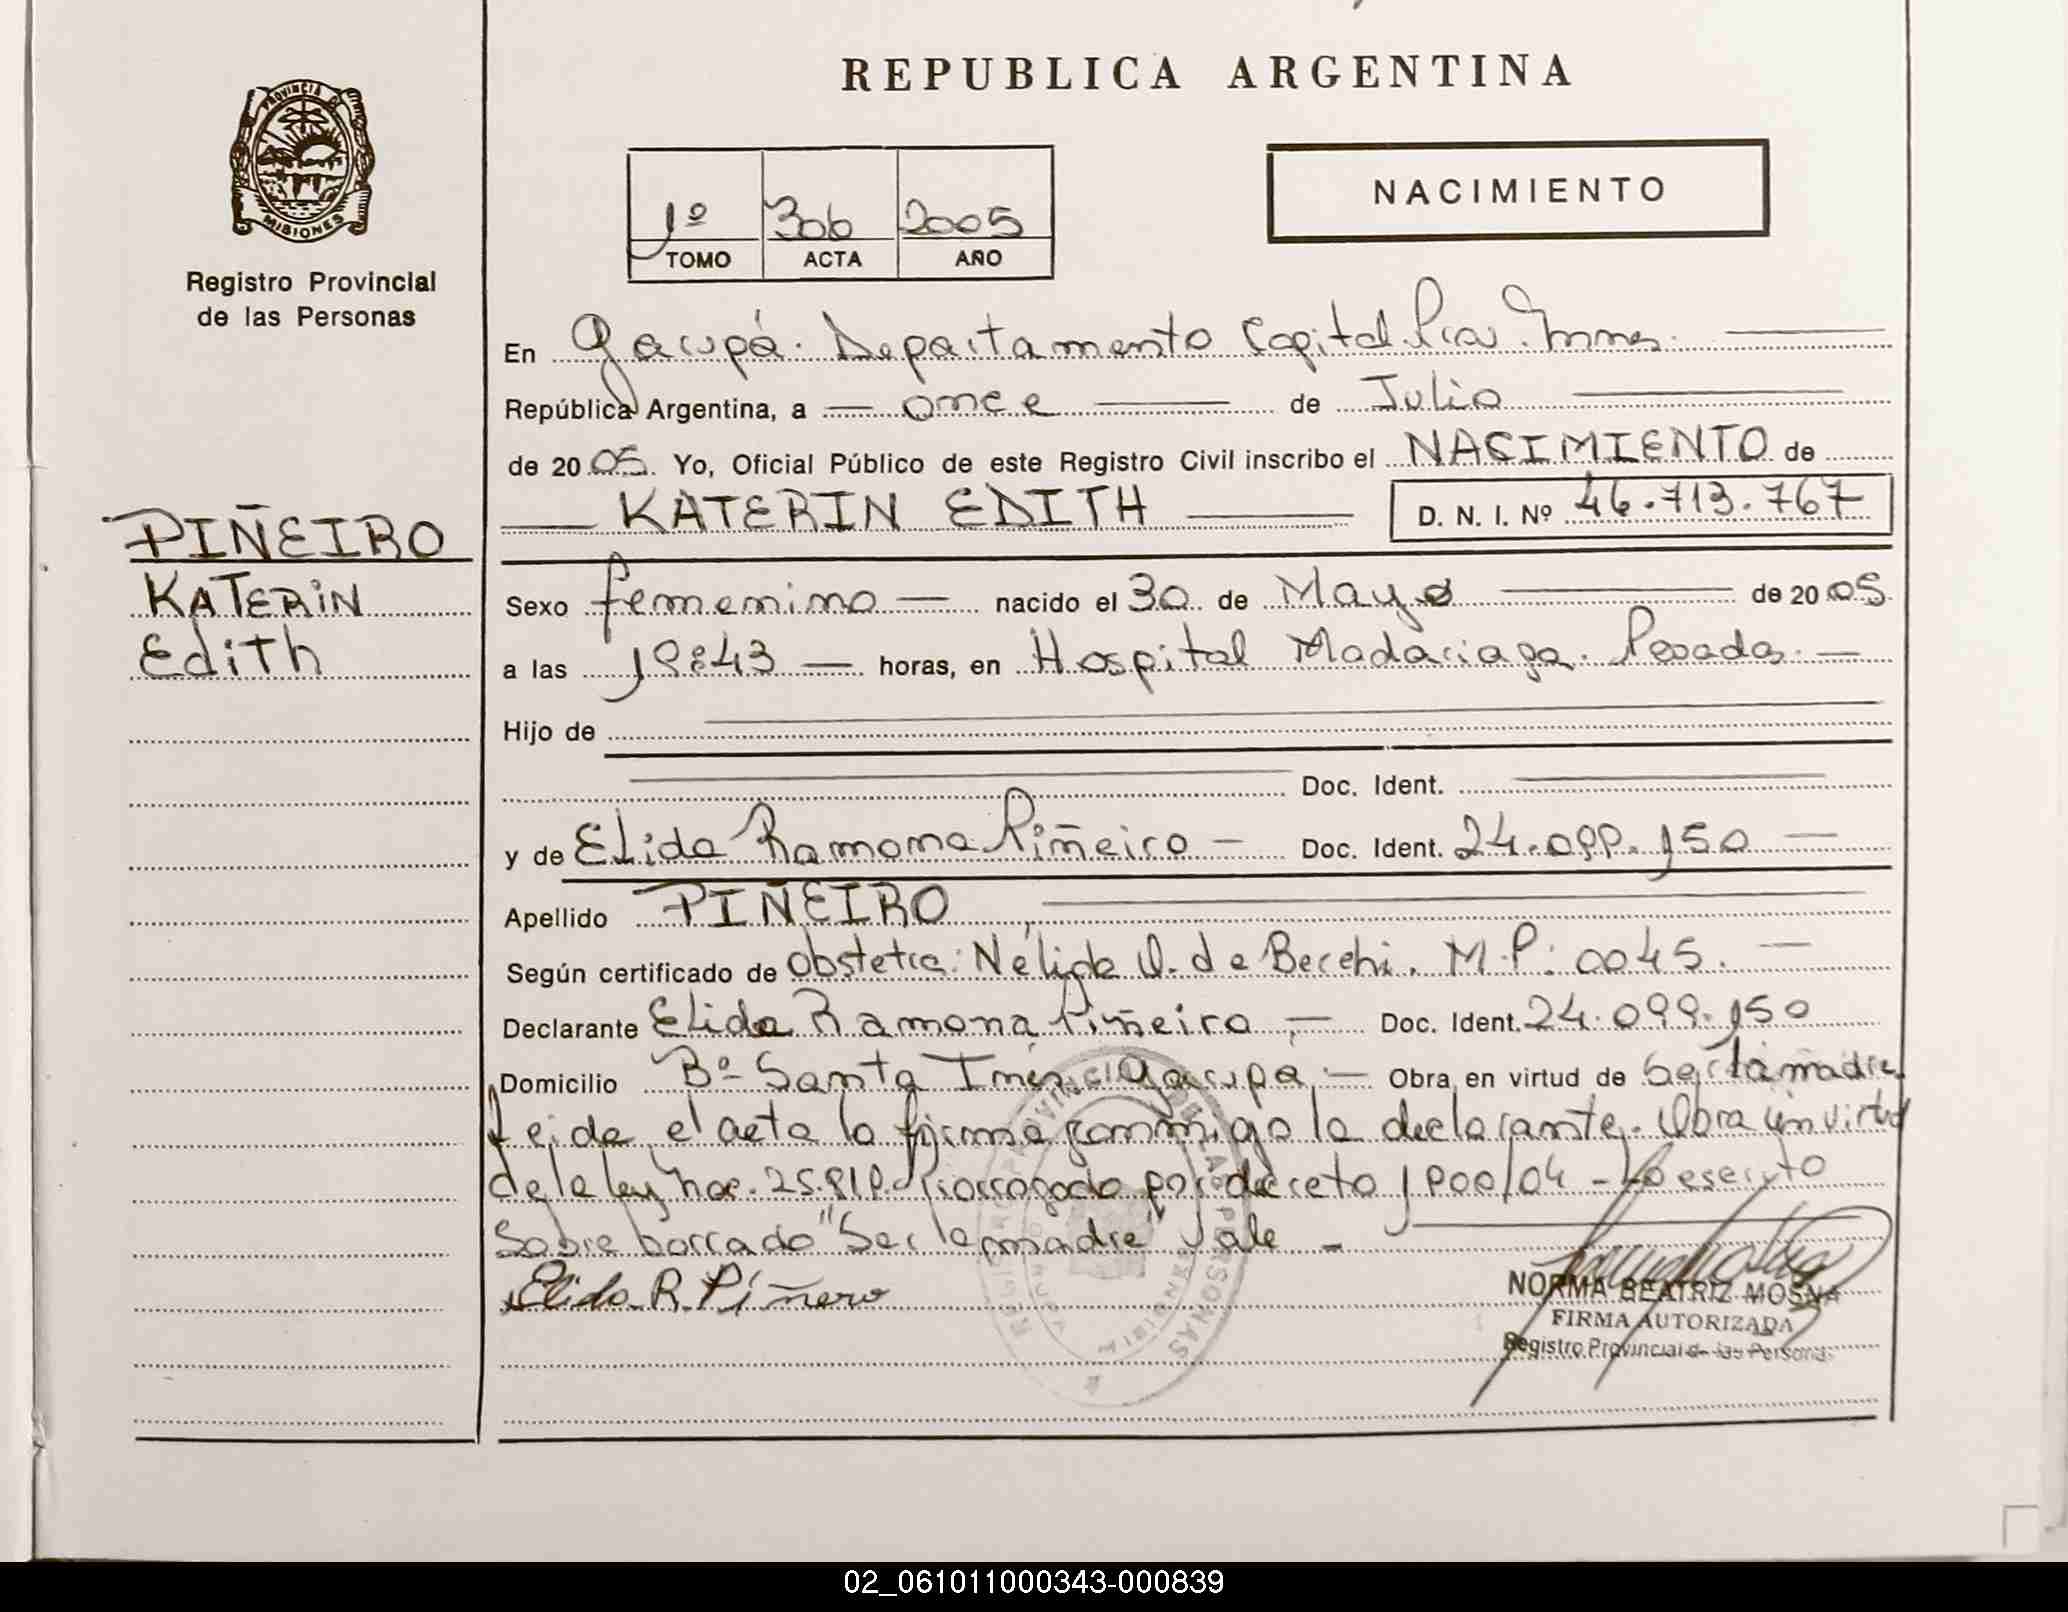 REPUBLICA ARGENTINA
PROVINCIA DE
MISIONES
Registro Provincial
de las Personas
1º 306 2005
TOMO ACTA AÑO
NACIMIENTO
En Garupá. Departamento Capital Pcia. Mnes.
República Argentina, a once de Julio
de 2005. Yo, Oficial Público de este Registro Civil inscribo el NACIMIENTO de
KATERIN EDITH D. N. I. Nº 46.713.767
PIÑEIRO
KATERIN
Edith
Sexo femenino nacido el 30 de Mayo de 2005
a las 19:43 horas, en Hospital Madariaga. Posadas.
Hijo de
Doc. Ident.
y de Elida Ramona Piñeiro Doc. Ident. 24.099.150
Apellido PIÑEIRO
Según certificado de obstetra: Nélida O. de Becchi. M.P: 0045.
Declarante Elida Ramona Piñeiro Doc. Ident. 24.099.150
Domicilio Bº Santa Inés, Garupa, Obra en virtud de Ser la madre
Leida el acta la firma conmigo la declarante. Obra en virtud
de la ley nac. 25.819. Prorrogado por decreto 1900/04 - Lo escrito
Sobre borrado "Ser la madre" Vale -
Elida R. Piñero
NORMA BEATRIZ MOSNA
FIRMA AUTORIZADA
Registro Provincial de las Personas
02_061011000343-000839